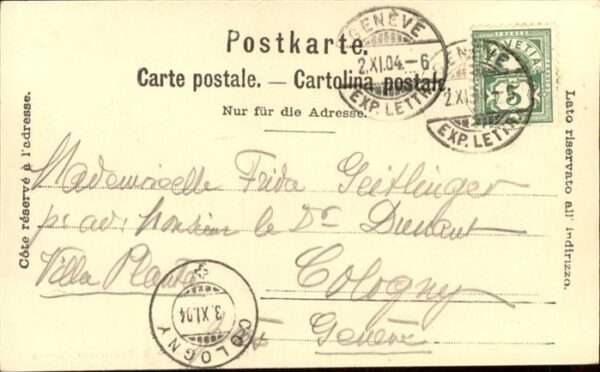 Postkarte.
Carte postale. — Cartolina postale.
Nur für die Adresse.
Côte réservé à l'adresse.
Lato riservato all' indirizzo.
GENÈVE
2.XI.04.-6
EXP. LETTR.
GENÈVE
2.XI.
EXP. LETTR.
HELVETIA
5
Mademoiselle Frida Geitlinger
pr adr: Monsieur le Dr Dunant
Villa Planta
Cologny
Genève
3.XI.04
COLOGNY